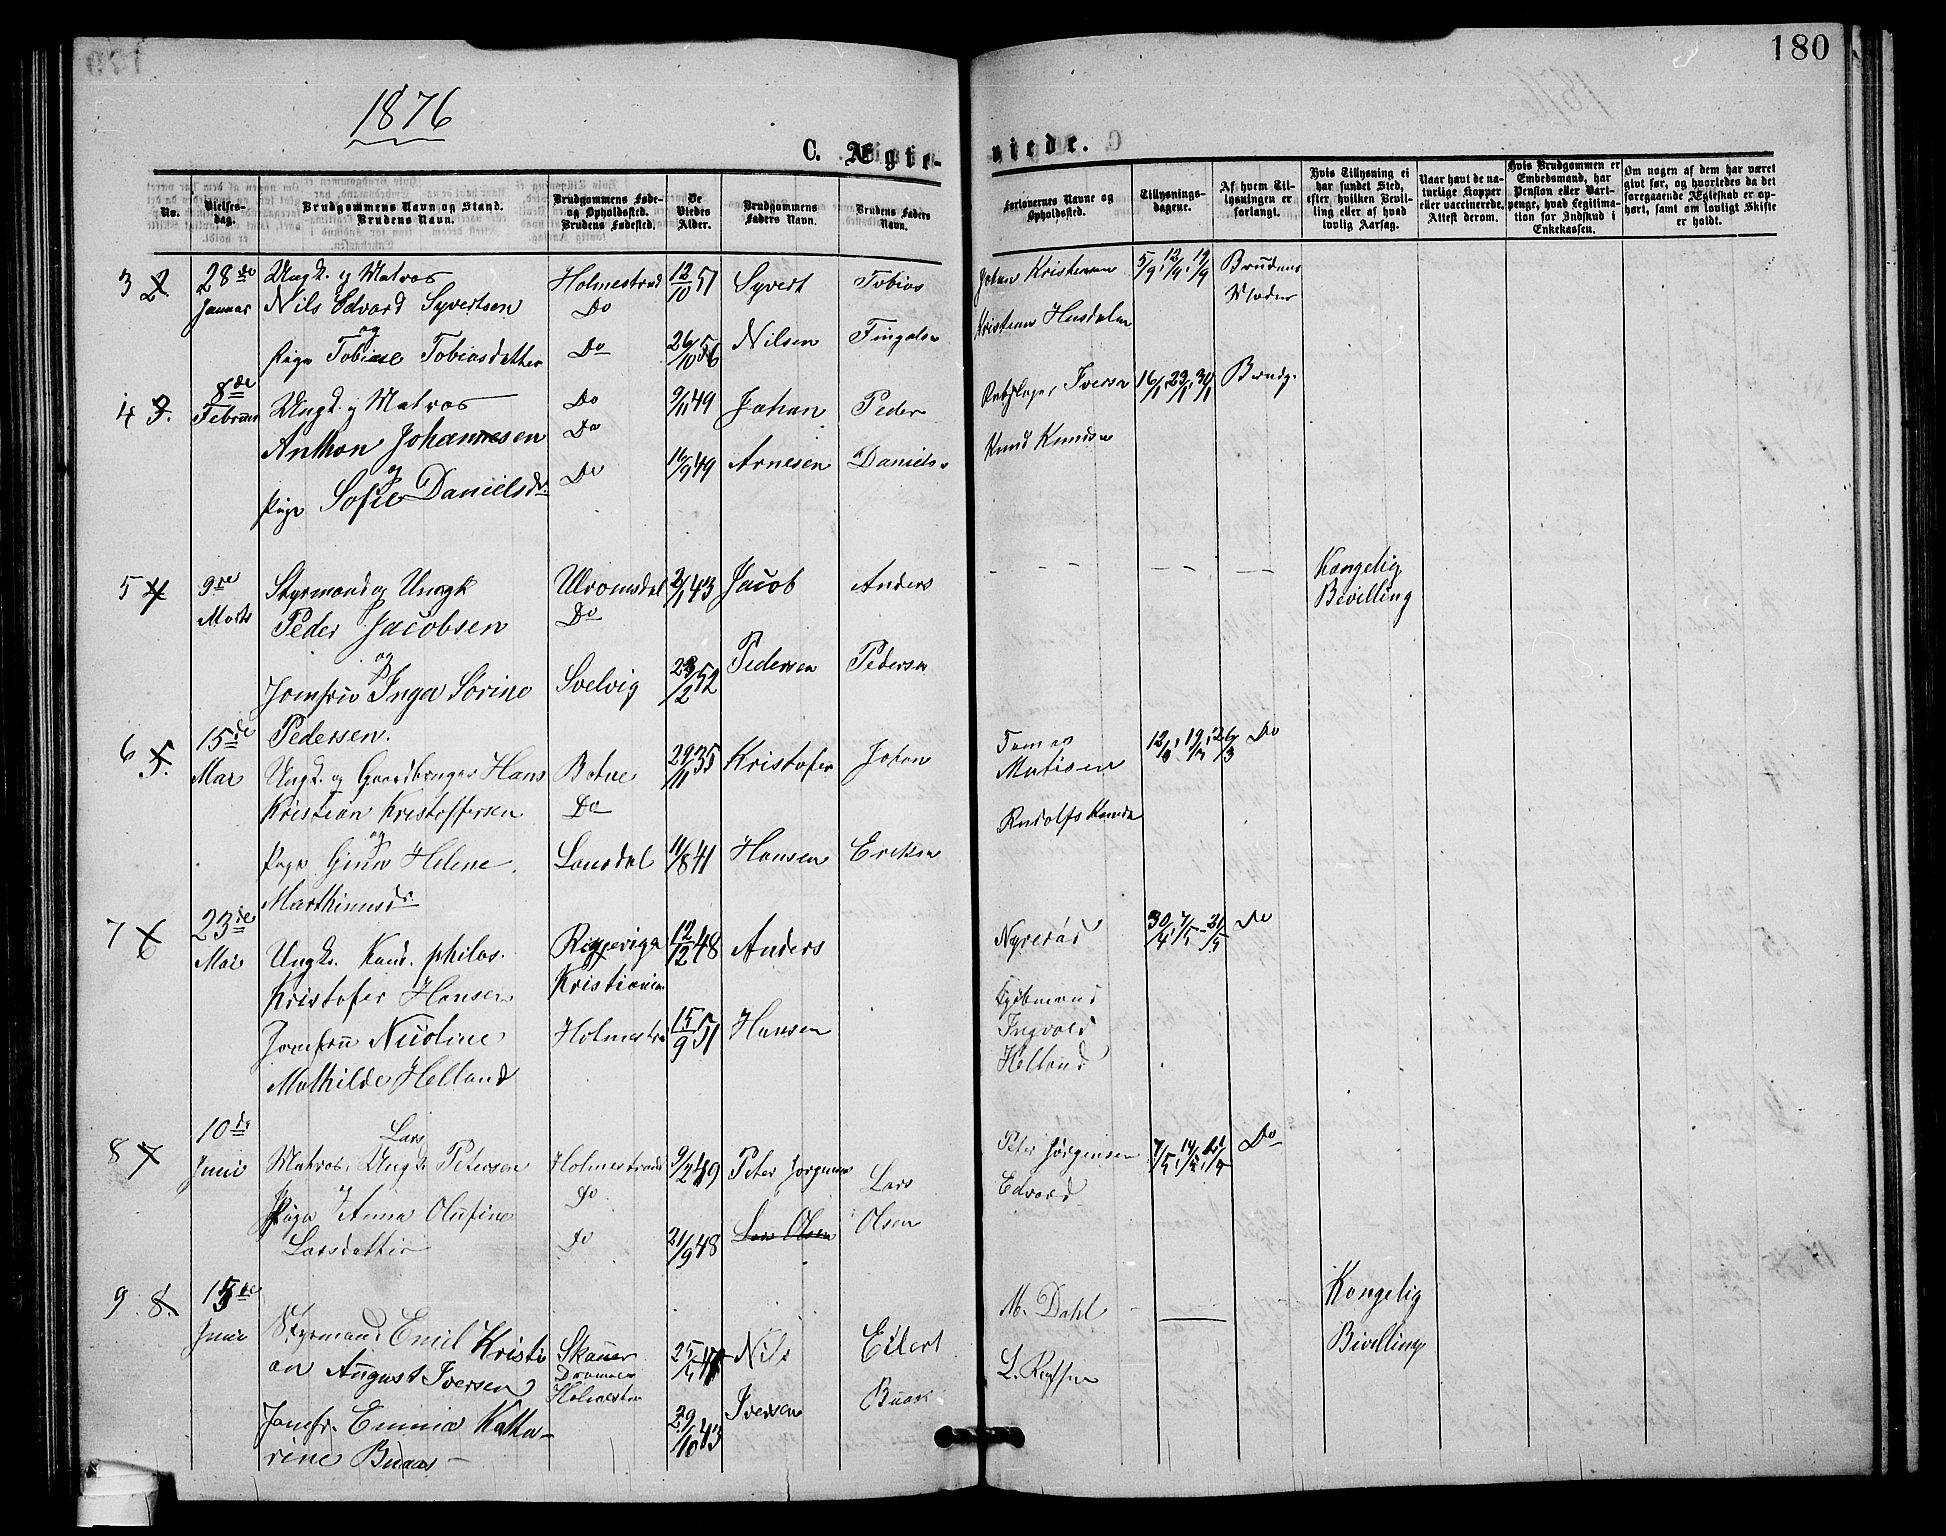 180
1876
C. Ægte-
viede.
No.
Vielses-
dag.
Brudgommens Navn og Stand.
Brudens Navn.
Brudgommens Føde-
og Opholdssted.
Brudens Fødested.
De
Viedes
Alder.
Brudgommens
Faders Navn.
Brudens Faders
Navn.
Forlovernes Navne og
Opholdssted.
Tillysnings-
dagene.
Af hvem Til-
lysningen er
forlangt.
Hvis Tillysning ei
har fundet Sted,
efter hvilken Bevil-
ling eller af hvad
lovlig Aarsag.
Naar havt de na-
turlige Kopper
eller vaccinerede.
Attest derom.
Hvis Brudgommen er
Embedsmand, har
Pension eller Vart-
penge, hvad Legitima-
tion for Indskud i
Enkekassen.
Om nogen af dem har været
givt før, og hvorledes da det
foregaaende Ægteskab er op-
hørt, samt om lovligt Skifte
er holdt.
3 2. 28de Januar
Ungk. og Matros
Nils Edvard Syvertsen
og
Pige Tobine Tobiasdatter
Holmestrand
Do
Do
12/10 51
26/10 56
Syvert
Nilsen
Tobias
Fingalsen
Johan Kristensen
Kristian Husdalen
5/9, 12/9, 19/9
Brudens
Moder
4 3. 8de Februar
Ungk. og Matros
Anthon Johannesen
og
Pige Sofie Danielsdr
Do
Do
Do
9/11 49
16/9 49
Johan
Arnesen
Peder
Daniels
Iversen
Knud Knudsen
16/1, 23/1, 30/1
Brudg.
5 4 9de Marts
Styrmand og Ungk
Peder Jacobsen
og
Jomfru Inga Sorine
Pedersen.
Ulvomsdal
Do
Svelvig
2/1 43
23/2 52
Jacob
Pedersen
Anders
Pedersen
Kongelig
Bevilling
6 5. 15de Mai
Ungk. og Gaardbruger Hans
Kristian Kristoffersen
og
Pige Helene
Marthinusdr
Botne
Do
Lonsdal
29/11 35
11/8 41
Kristofer
Hansen
Johan
Eriksen
Matisen
Rudolf
12/3, 19/3, 26/3
Do
7 6 23de Mai
Ungk. Kand. philos.
Kristofer Hansen
Jomfru Nicoline
Mathilde Helland
Kristiania
Holmestra
12/12 48
15/9 51
Anders
Hansen
Kjøbmand
Ingvald
Helland
30/4, 7/5 - 21/5
Do
8 7 10de Juni
Lars
Matros, Ungk. Petersen
og
Pige Anna Olufine
Larsdatter
Holmestrand
Do
Do
9/2 49
21/9 48
Peter Jørgensen
Lars Olsen
Lars
Olsen
Peter Jørgensen
Edvard
7/5, 14/5, 21/5
Do
9. 8. 15de Juni
Styrmand Emil Kristi
an August Iversen
Jomfr. Emma Katha-
rine Buaas
Skauer
Drammen
Holmestra
29/10 43
Nils
Iversen
Eilert
Buaas
M. Dahl
Kongelig
Bevilling